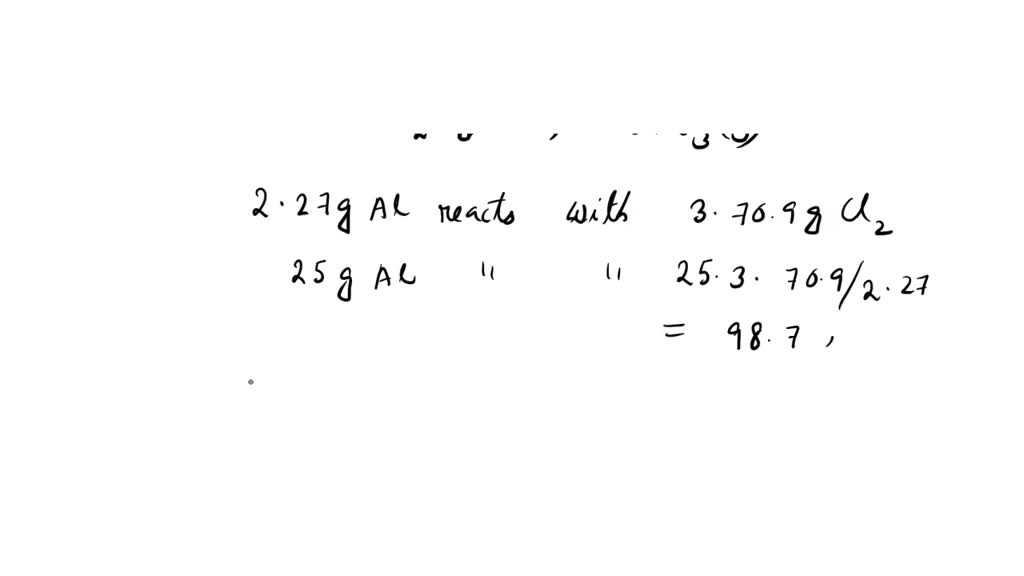 2·27g Al reacts with 3·70.9g Cl₂
25g Al " " 25·3·70.9/2·27
= 98.7,